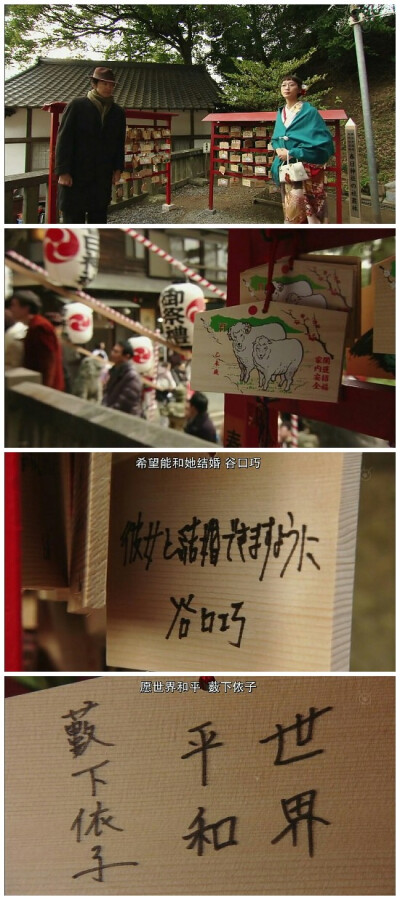 御祭禮
開運招福
家内安全
希望能和她结婚 谷口巧
彼女と結婚できますように
谷口巧
愿世界和平 薮下依子
世界
平和
藪下依子